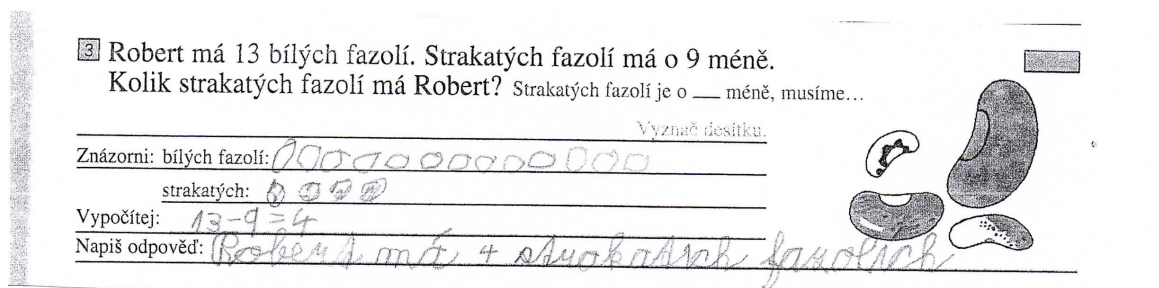 3 Robert má 13 bílých fazolí. Strakatých fazolí má o 9 méně.
Kolik strakatých fazolí má Robert? Strakatých fazolí je o __ méně, musíme…
Vyznač desítku.
Znázorni: bílých fazolí:
strakatých:
Vypočítej: 13-9=4
Napiš odpověď: Robert má 4 strakatich fazolich